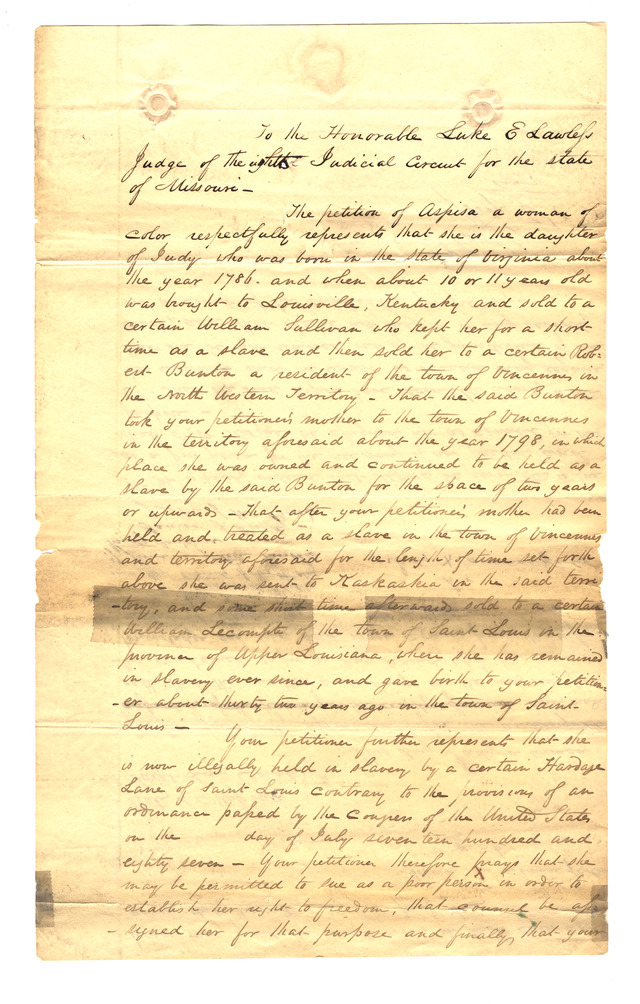 To the Honorable Luke E Lawless
Judge of the eighth Judicial Circuit for the state
of Missouri –
The petition of Aspisa a woman of
color respectfully represents that she is the daughter
of Judy who was born in the state of Virginia about
the year 1786. and when about 10 or 11 years old
was brought to Louisville, Kentucky and sold to a
certain William Sullivan who kept her for a short
time as a slave and then sold her to a certain Rob=
ert Bunton a resident of the town of Vincennes in
the North Western Territory – That the said Bunton
took your petitioner's mother to the town of Vincennes
in the territory aforesaid about the year 1798, in which
place she was owned and continued to be held as a
slave by the said Bunton for the space of two years
or upwards – That after your petitioner's mother had been
held and treated as a slave in the town of Vincennes
and territory aforesaid for the length of time set forth
above she was sent to Kaskaskia in the said terri
-tory, and some short time afterwards sold to a certain
William Lecompte of the town of Saint Louis in the
province of Upper Louisiana, where she has remained
in slavery ever since, and gave birth to your petition-
-er about thirty two years ago in the town of Saint
Louis –
Your petitioner further represents that she
is now illegally held in slavery by a certain Hardage
Lane of Saint Louis contrary to the provisions of an
ordinance passed by the Congress of the United States
on the day of July seventeen hundred and
eighty seven – Your petitioner therefore prays that she
may be permitted to sue as a poor person in order to
establish her right to freedom, that counsel be as
signed her for that purpose and finally that your